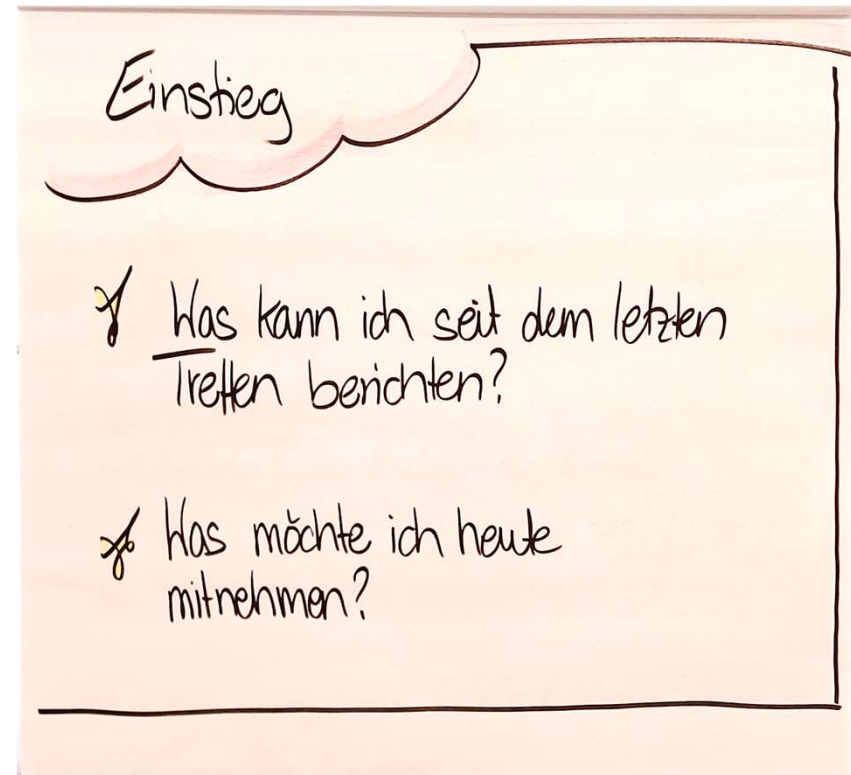 Einstieg
Was kann ich seit dem letzten
Treffen berichten?
Was möchte ich heute
mitnehmen?